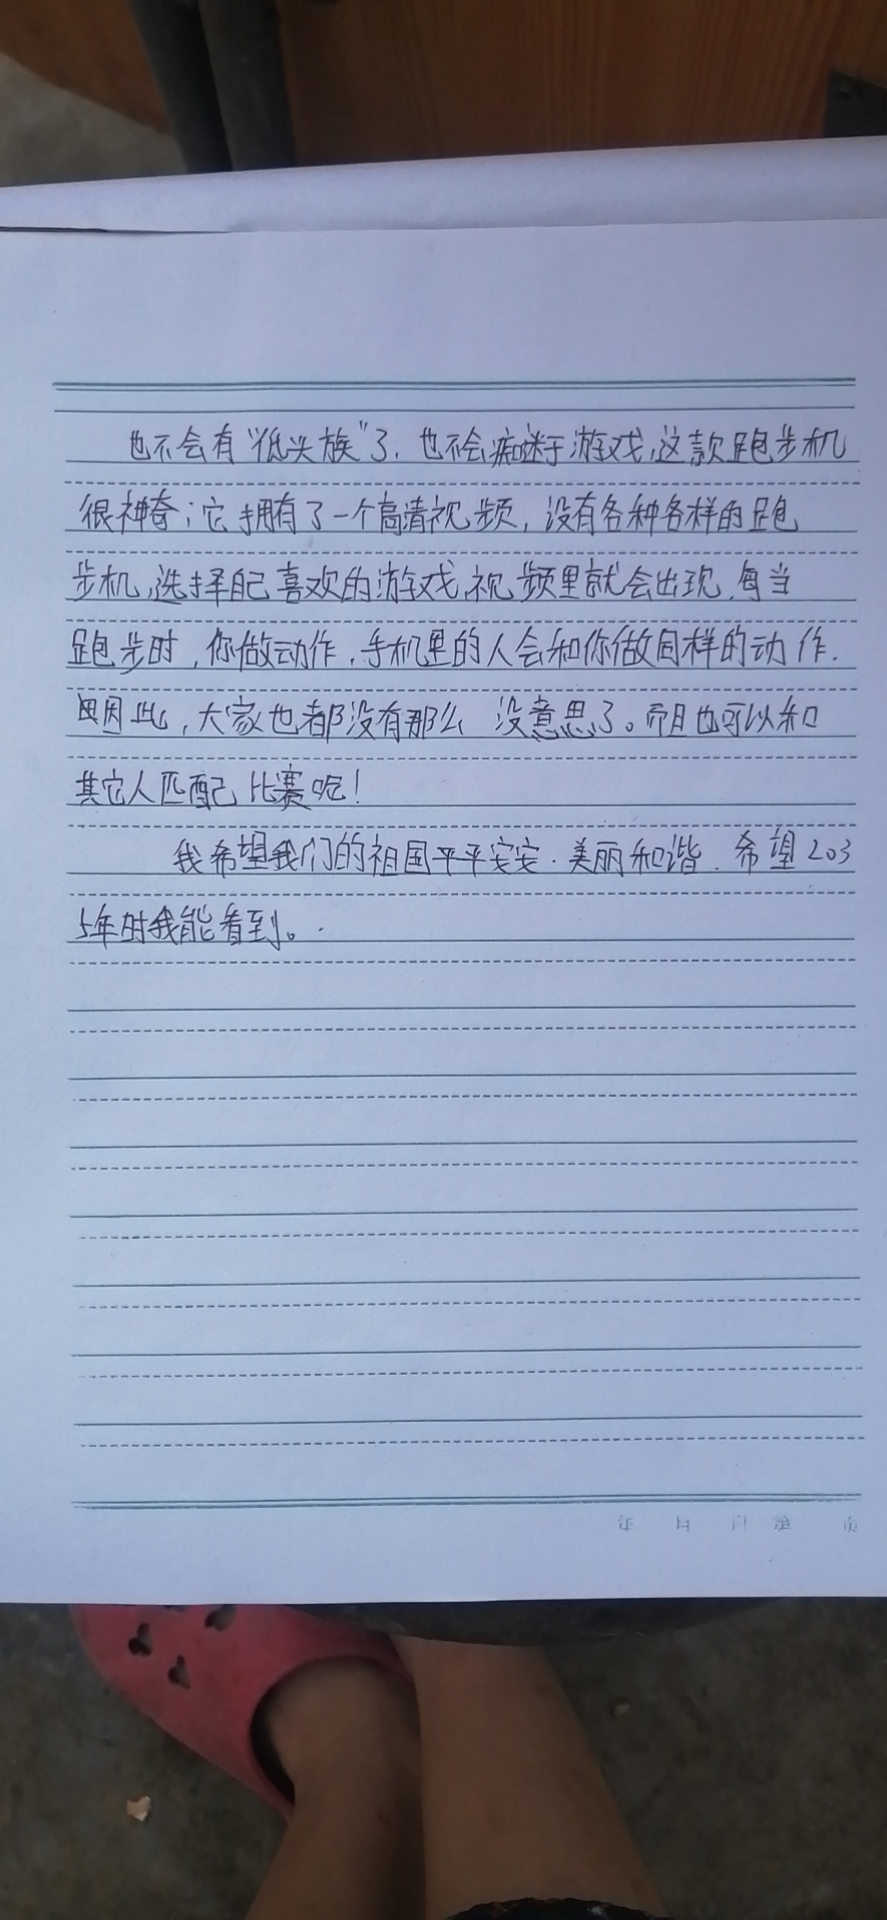 也不会有“低头族”了，也不会痴迷于游戏，这款跑步机
很神奇；它拥有了一个高清视频，没有各种各样的跑
步机，选择自己喜欢的游戏，视频里就会出现，每当
跑步时，你做动作，手机里的人会和你做同样的动作.
因此，大家也都没有那么 没意思了。而且也可以和
其它人匹配比赛呢！
我希望我们的祖国平平安安．美丽和谐．希望203
5年时我能看到。.
年 月 日 第 页